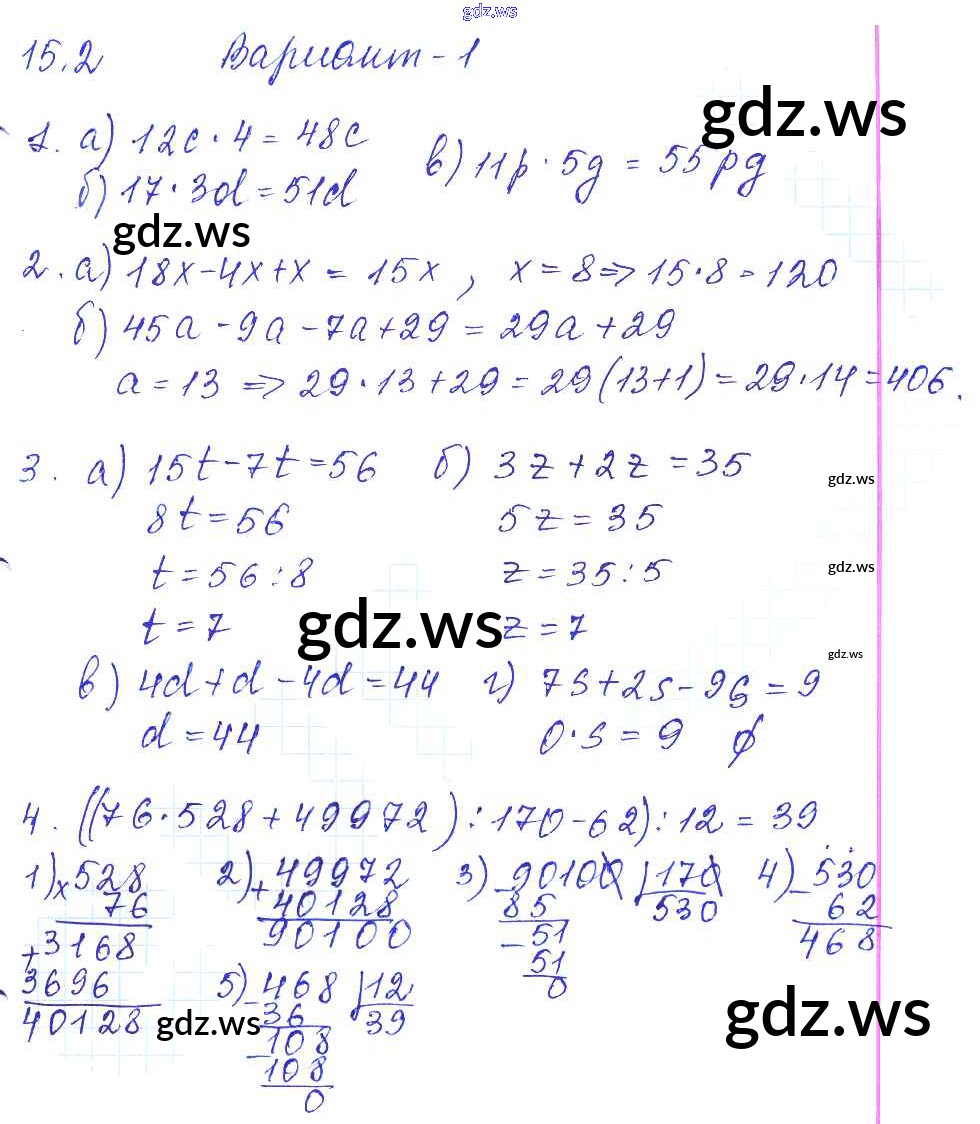 gdz.ws
15.2 Вариант - 1
gdz.ws
1. а) 12c · 4 = 48c
б) 17 · 3d = 51d
в) 11p · 5g = 55pg
gdz.ws
2. а) 18x - 4x + x = 15x , x = 8 => 15 · 8 = 120
б) 45a - 9a - 7a + 29 = 29a + 29
a = 13 => 29 · 13 + 29 = 29(13+1) = 29 · 14 = 406.
3. а) 15t - 7t = 56
8t = 56
t = 56 : 8
t = 7
б) 3z + 2z = 35
5z = 35
z = 35 : 5
z = 7
gdz.ws
gdz.ws
gdz.ws
gdz.ws
в) 4d + d - 4d = 44
d = 44
г) 7s + 2s - 9s = 9
0 · s = 9 ∅
4. ((76 · 528 + 49972) : 170 - 62) : 12 = 39
1) × 528
76
+ 3168
3696
40128
2) + 49972
40128
90100
3) - 90100 | 170
85 530
- 51
51
0
4) - 530
62
468
5) - 468 | 12
36 39
- 108
108
0
gdz.ws
gdz.ws